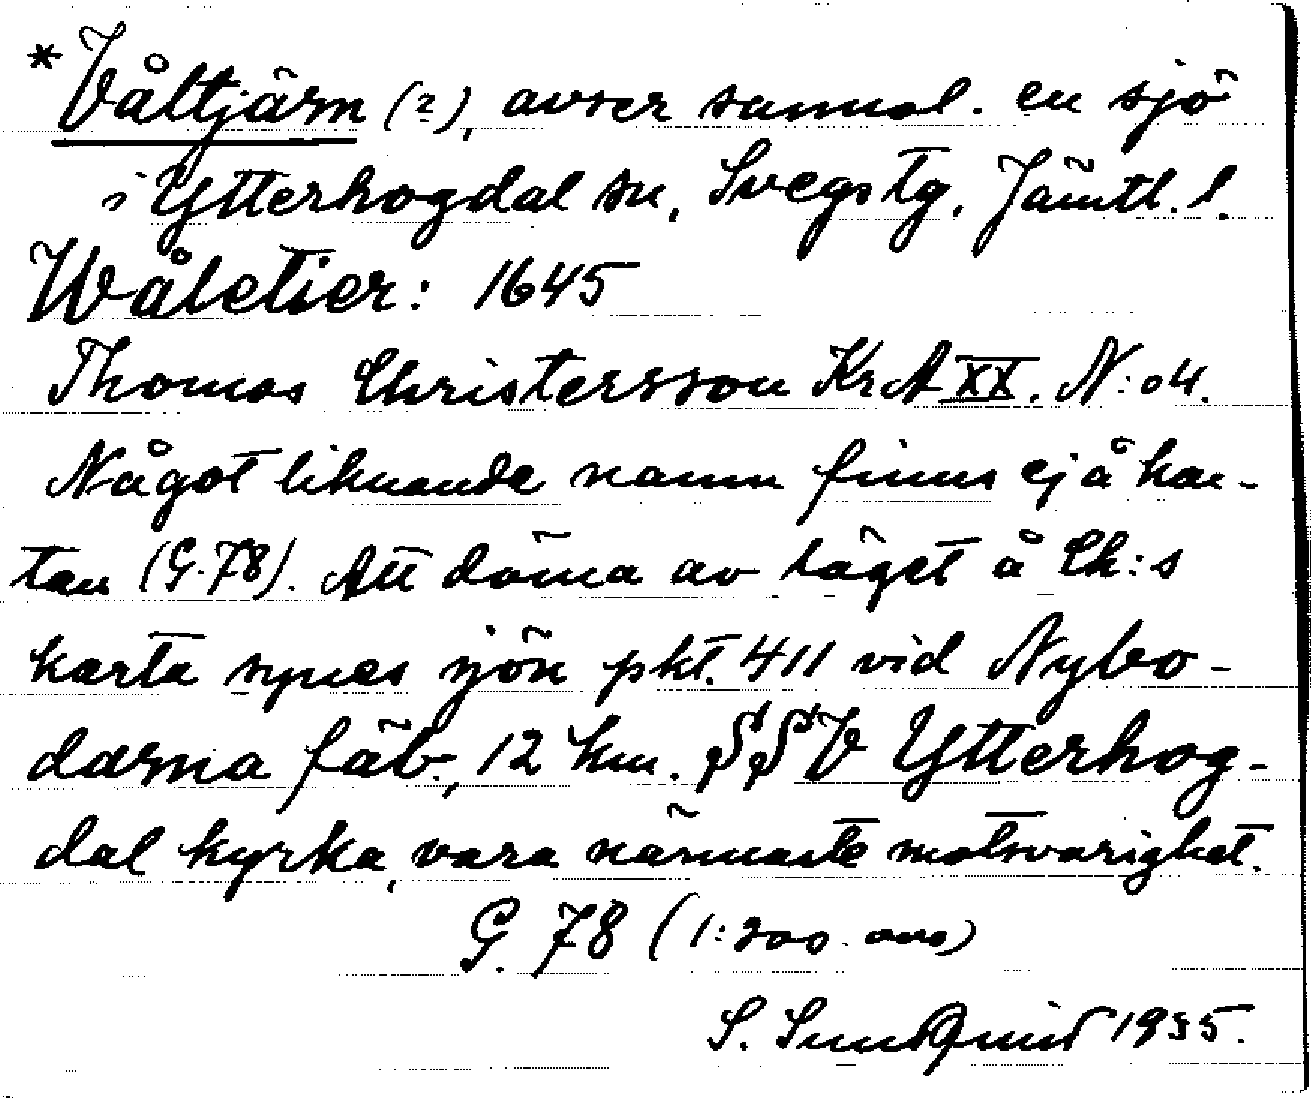 *Våltjärn (?), avser sannol. en sjö
i Ytterhogdal sn, Svegs tg. Jämtl. l.
Wåletier: 1645
Thomas Christersson KrA XX. N:o 4.
Något liknande namn finns ej å kar-
tan (G.78). Att döma av läget å Ch:s
karta synes sjön pkt. 411 vid Nybo-
darna fäb., 12 km. V Ytterhog-
dal kyrka, vara närmaste motsvarighet.
G. 78 (1:200.000)
S. Sundquist 1935.